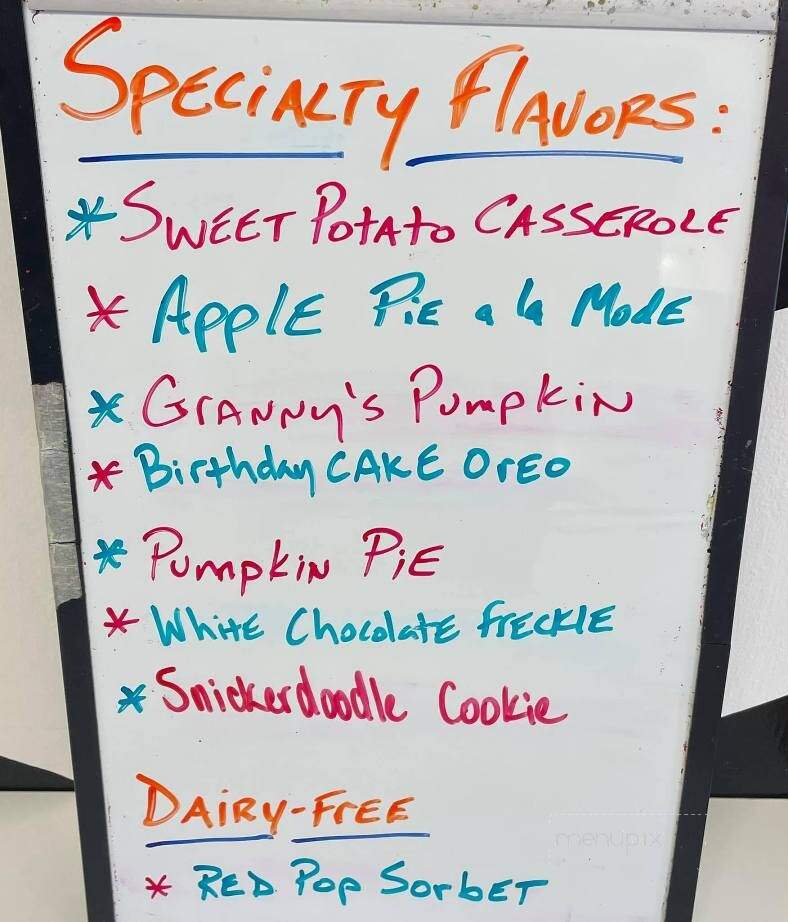 SPECiALTY FlAVORS:
* SWEET PotAto CASSEROLE
* APPlE PiE a la ModE
* GrANNy's PumpkiN
* Birthday CAKE OrEO
* PumpkiN PiE
* WhitE ChocolatE frECKlE
* Snickerdoodle Cookie
DAiRy-FrEE
* RED Pop SorbET
menupix